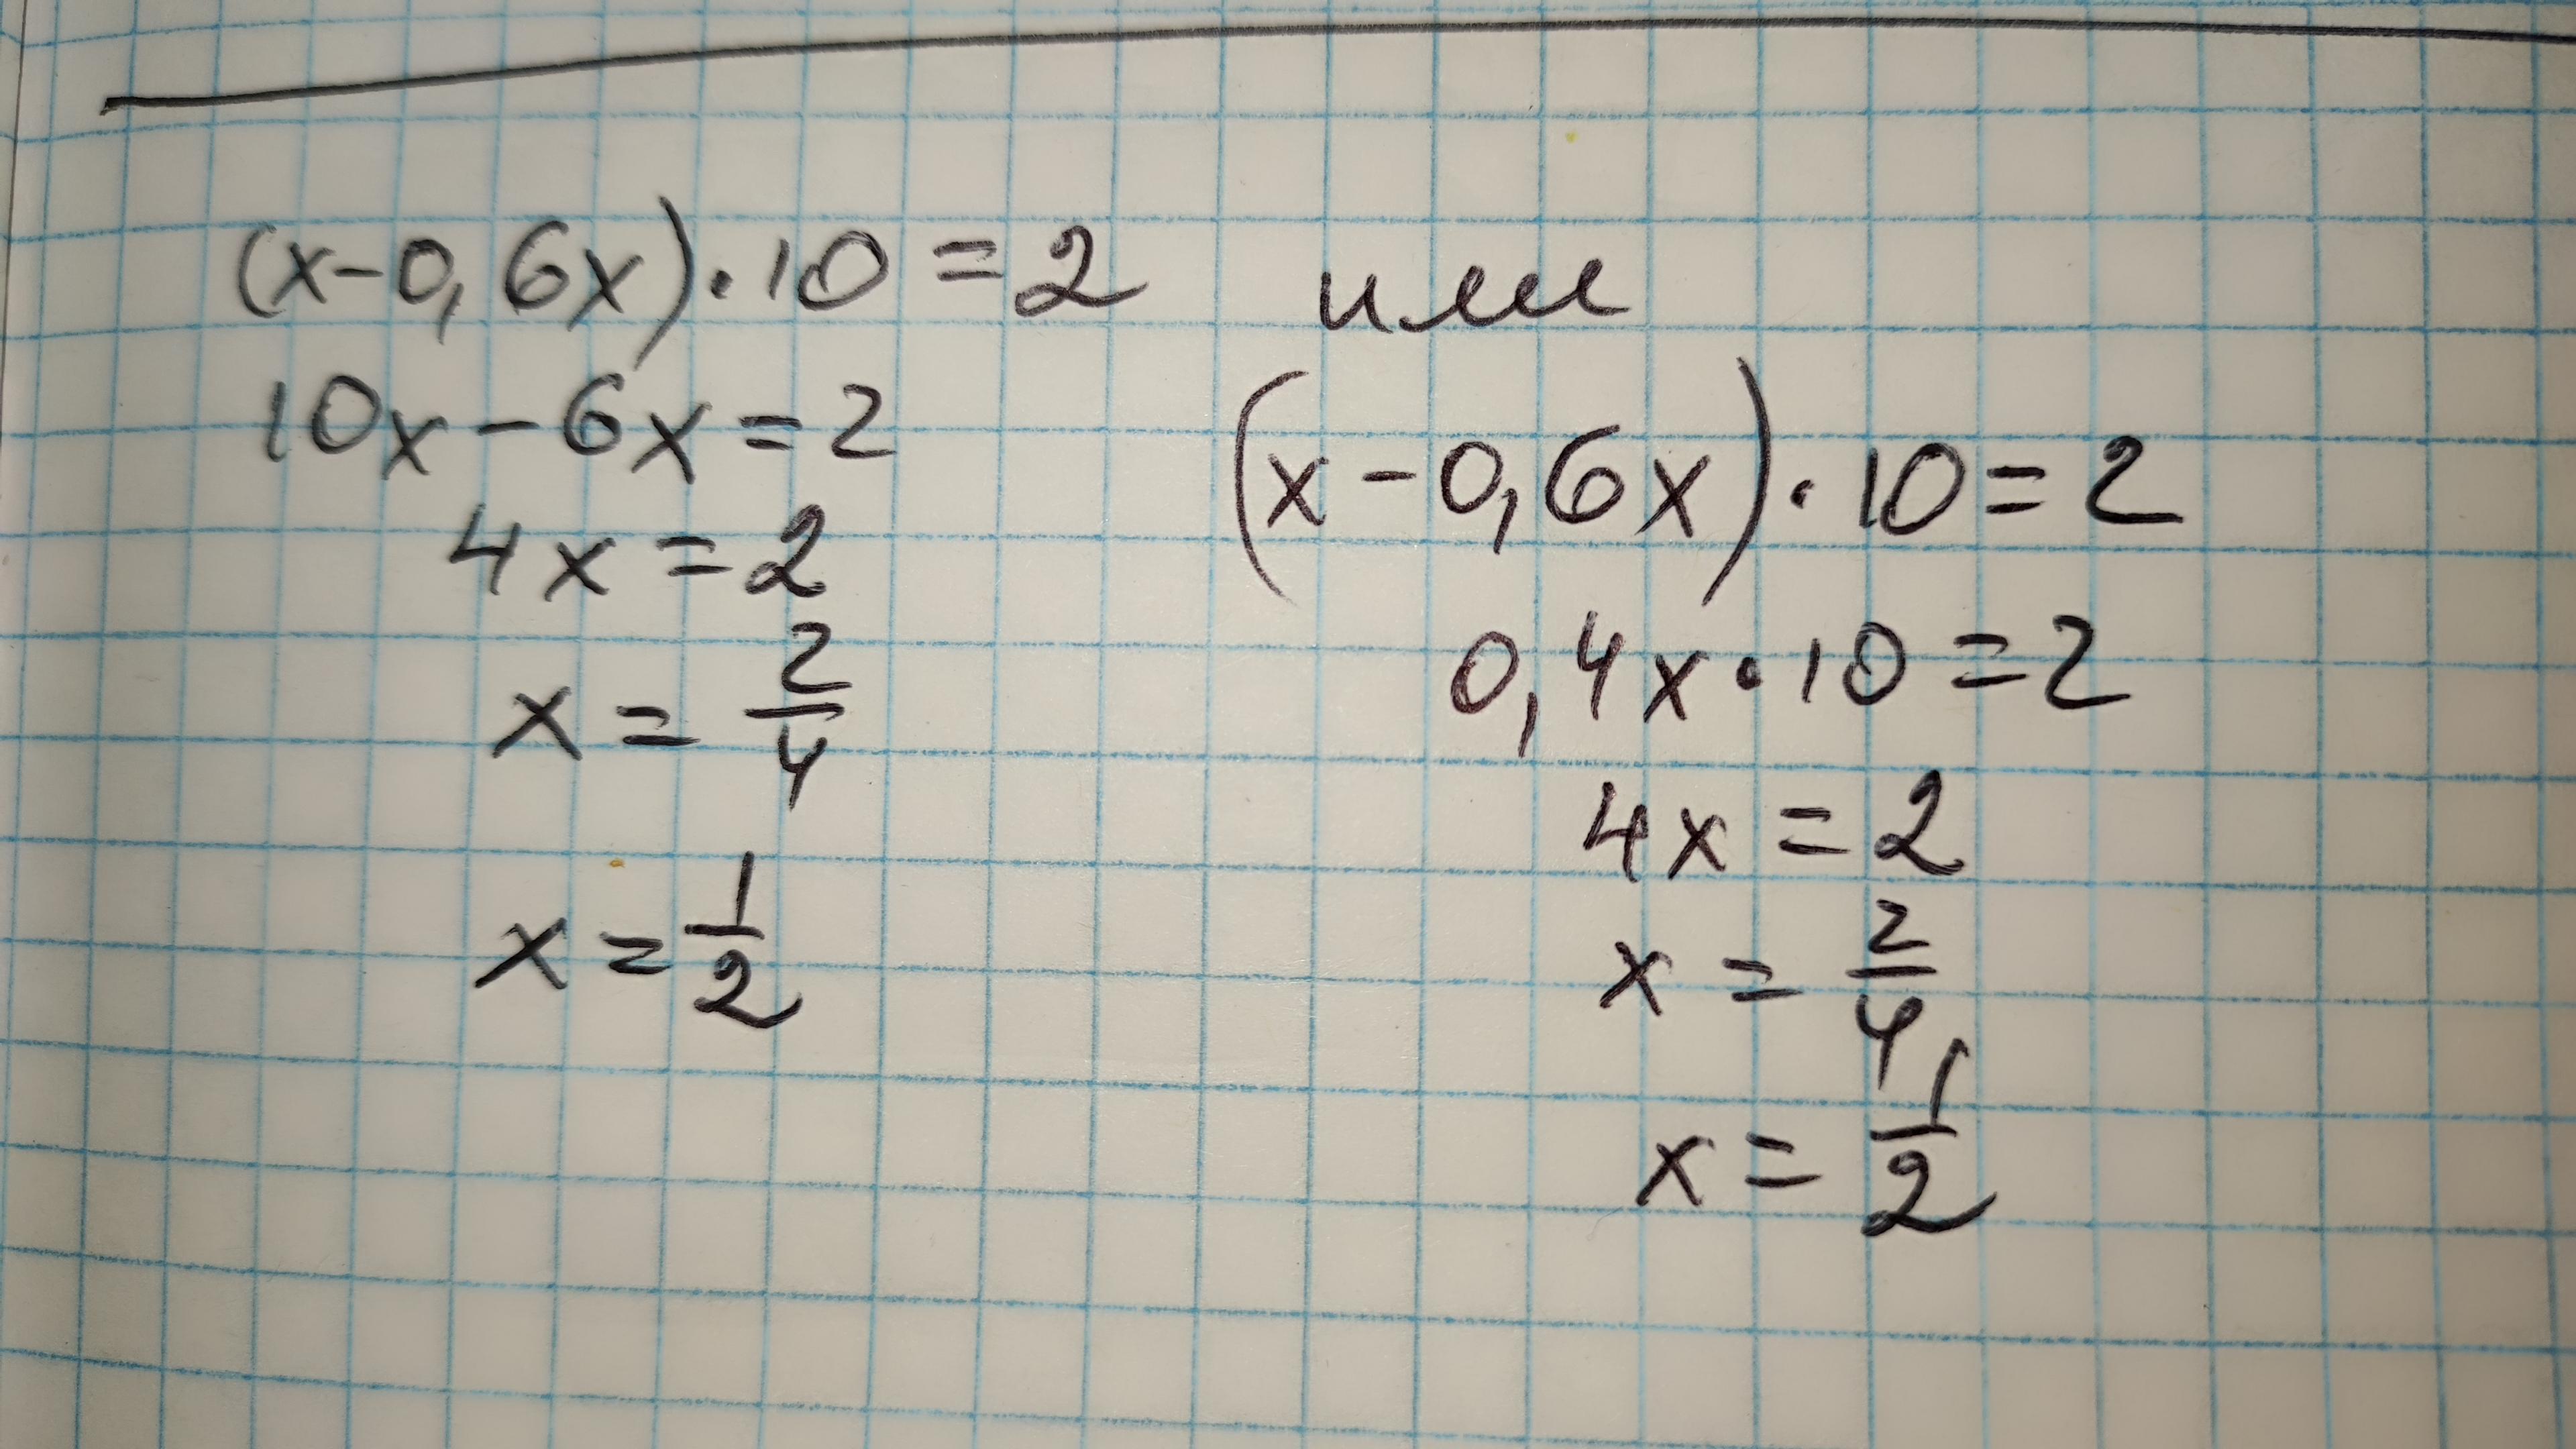 (x-0,6x)·10=2
10x-6x=2
4x=2
x=2/4
x=1/2
или
(x-0,6x)·10=2
0,4x·10=2
4x=2
x=2/4
x=1/2